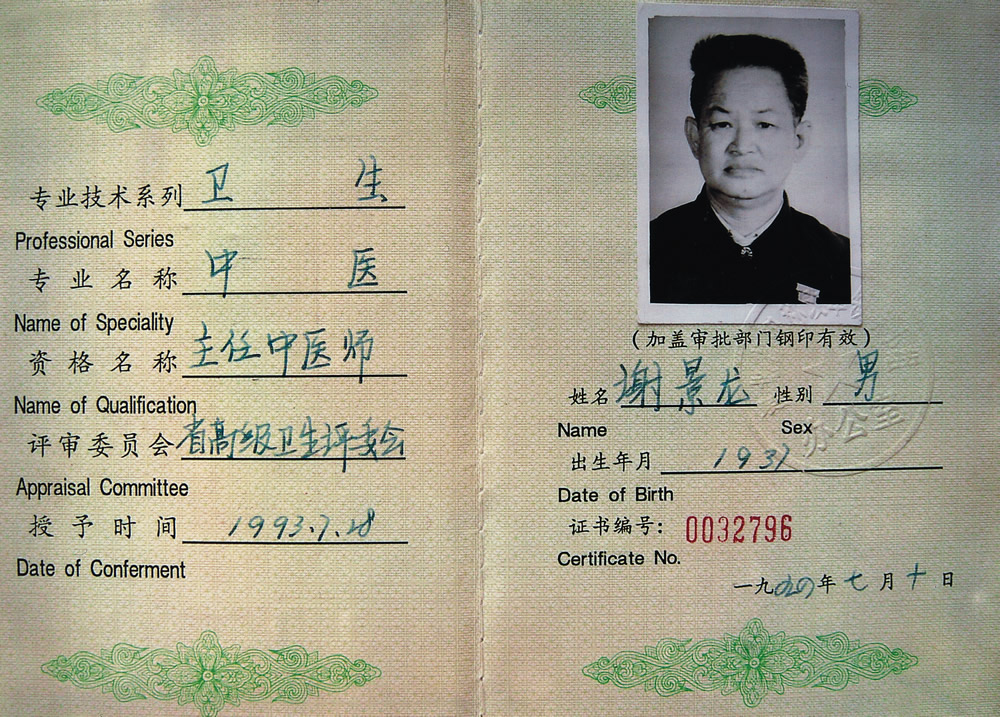 专业技术系列 卫生
Professional Series
专业名称 中医
Name of Speciality
资格名称 主任中医师
Name of Qualification
评审委员会 省高级卫生评委会
Appraisal Committee
授予时间 1993.7.28
Date of Conferment
(加盖审批部门钢印有效)
姓名 谢景龙 性别 男
Name Sex
出生年月 1937
Date of Birth
证书编号: 0032796
Certificate No.
一九 年七月十日
办公室